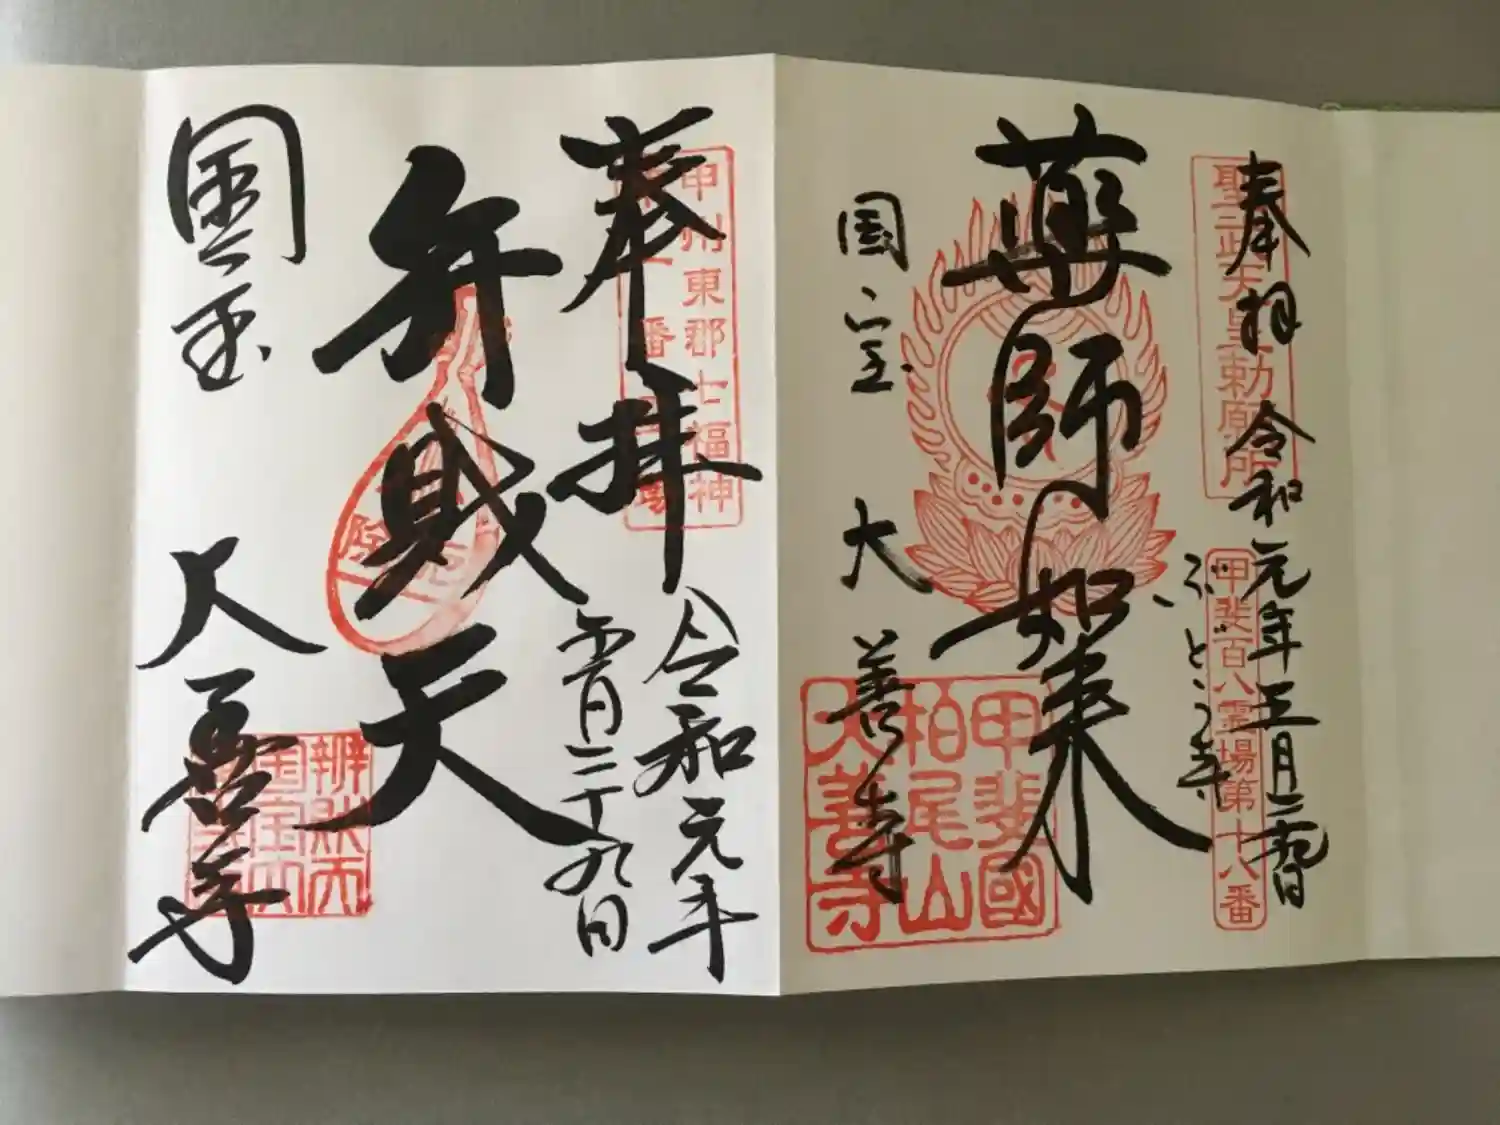 奉拝 令和元年五月二十九日
聖武天皇勅願所
ぶどう寺
甲斐百八霊場第十八番
薬師如来
国宝 大善寺
甲斐國
柏尾山
大善寺
奉拝 令和元年
五月二十九日
甲州東郡七福神
弁財天
國宝 大善寺